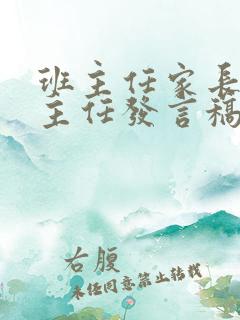 班主任家長
主任發言稿
右腹
未任同意禁止转载